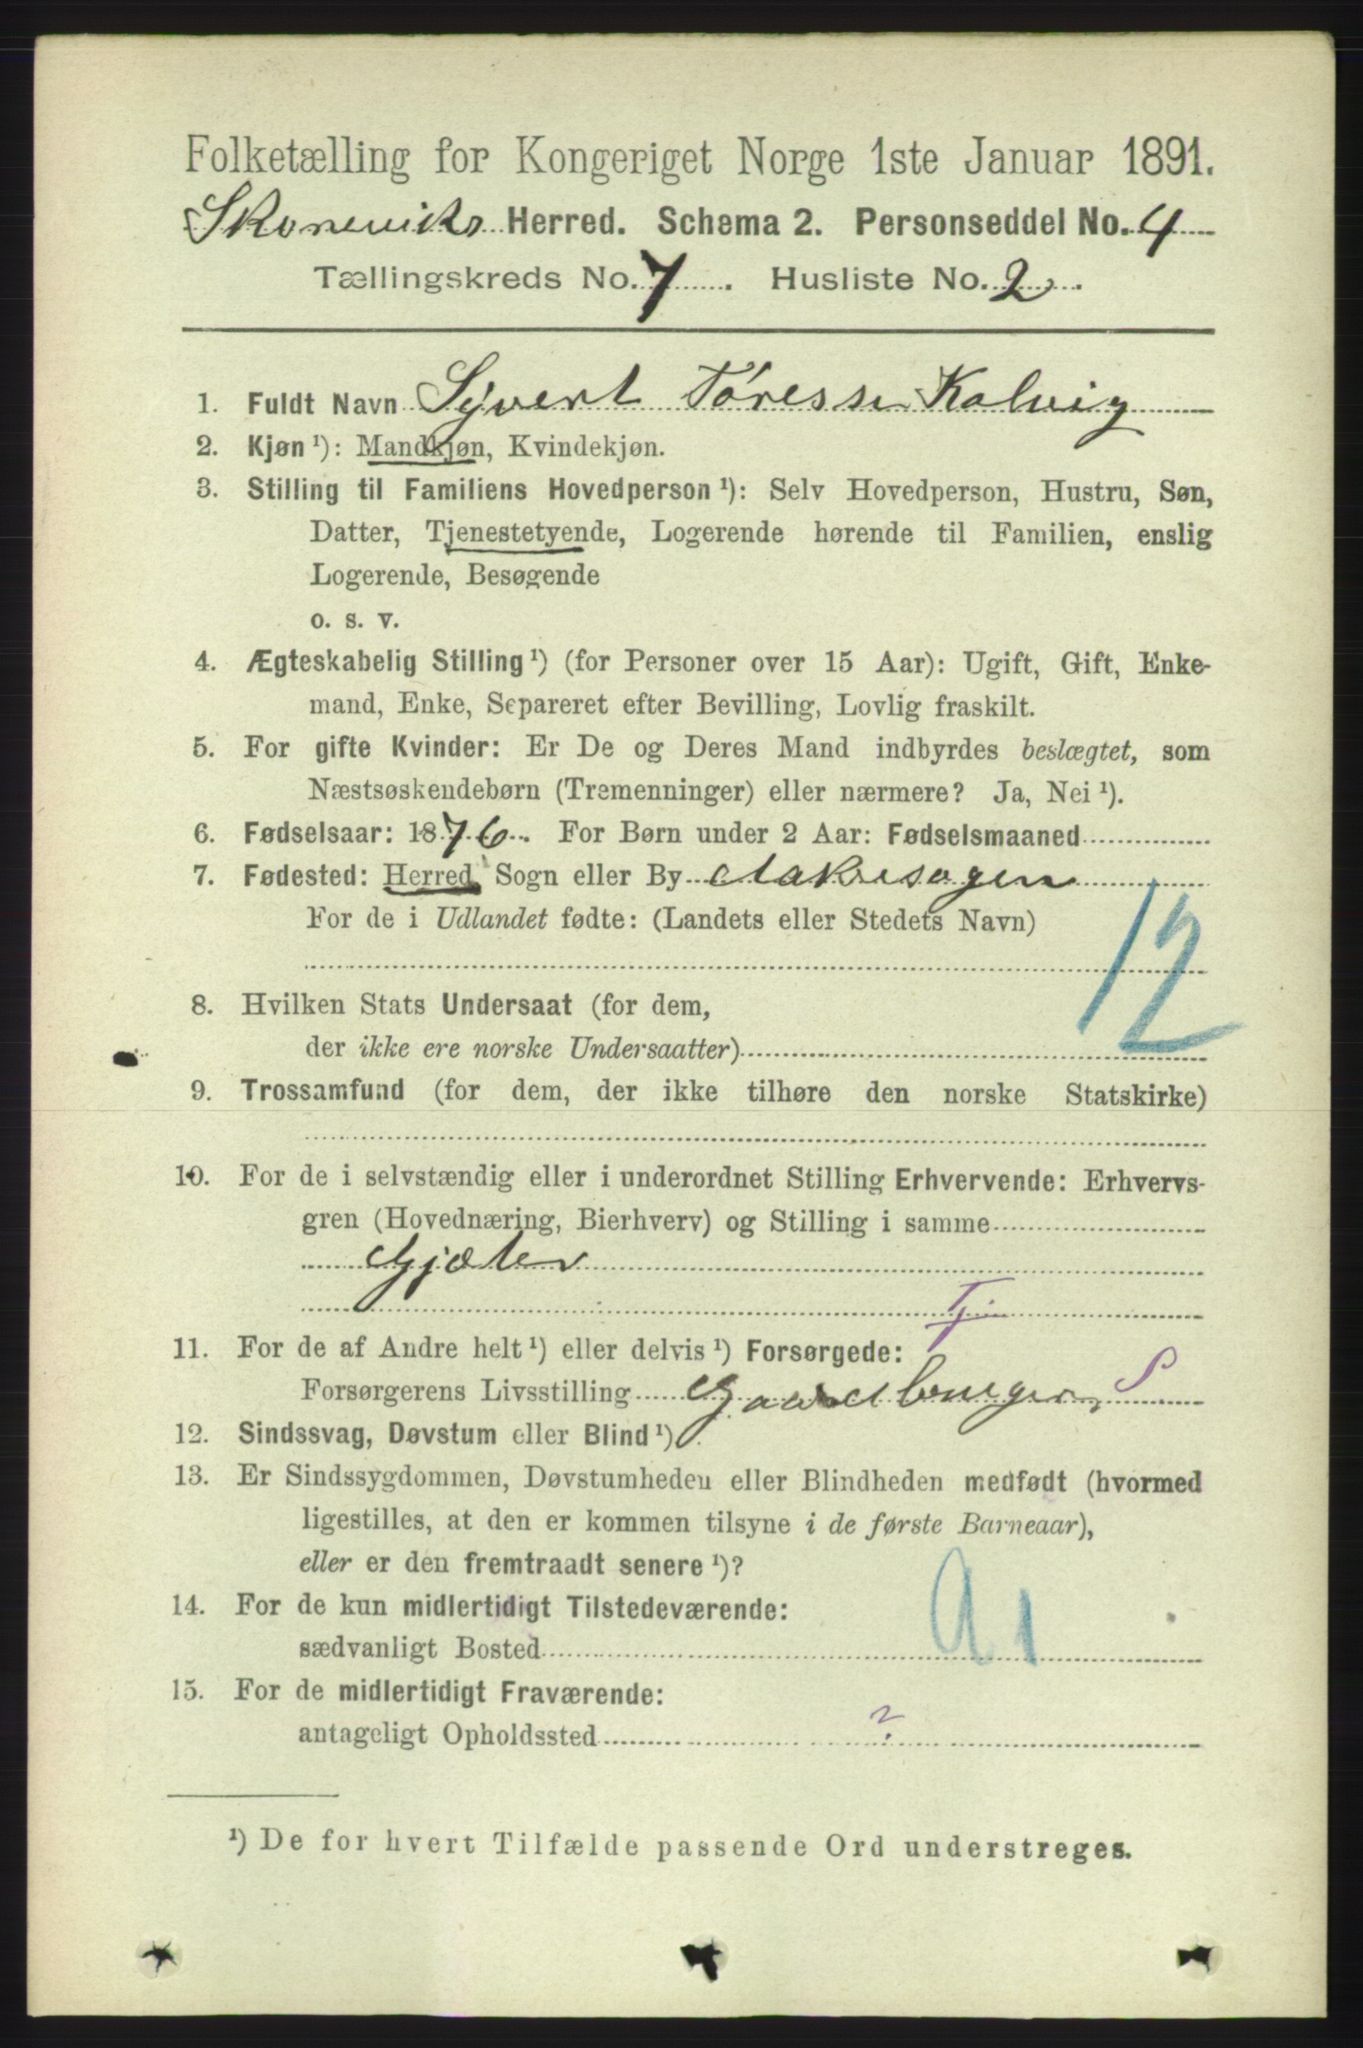 Folketælling for Kongeriget Norge 1ste Januar 1891.
Skoneviks Herred. Schema 2. Personseddel No. 4
Tællingskreds No. 7. Husliste No. 2.
1. Fuldt Navn Sjvert Töresse Kalvig
2. Kjøn ¹): Mandkjøn, Kvindekjøn.
3. Stilling til Familiens Hovedperson ¹): Selv Hovedperson, Hustru, Søn,
Datter, Tjenestetyende, Logerende hørende til Familien, enslig
Logerende, Besøgende
o. s. v.
4. Ægteskabelig Stilling ¹) (for Personer over 15 Aar): Ugift, Gift, Enke-
mand, Enke, Separeret efter Bevilling, Lovlig fraskilt.
5. For gifte Kvinder: Er De og Deres Mand indbyrdes beslægtet, som
Næstsøskendebørn (Tremenninger) eller nærmere? Ja, Nei ¹).
6. Fødselsaar: 1876. For Børn under 2 Aar: Fødselsmaaned
7. Fødested: Herred, Sogn eller By Aakresogen
For de i Udlandet fødte: (Landets eller Stedets Navn)
12
8. Hvilken Stats Undersaat (for dem,
der ikke ere norske Undersaatter)
9. Trossamfund (for dem, der ikke tilhøre den norske Statskirke)
10. For de i selvstændig eller i underordnet Stilling Erhvervende: Erhvervs-
gren (Hovednæring, Bierhverv) og Stilling i samme
Gjæter
Tj
11. For de af Andre helt ¹) eller delvis ¹) Forsørgede:
Forsørgerens Livsstilling Gaardbruger, S
12. Sindssvag, Døvstum eller Blind ¹).
13. Er Sindssygdommen, Døvstumheden eller Blindheden medfødt (hvormed
ligestilles, at den er kommen tilsyne i de første Barneaar),
eller er den fremtraadt senere ¹)?
14. For de kun midlertidigt Tilstedeværende:
sædvanligt Bosted
a1
15. For de midlertidigt Fraværende:
antageligt Opholdssted ?
¹) De for hvert Tilfælde passende Ord understreges.